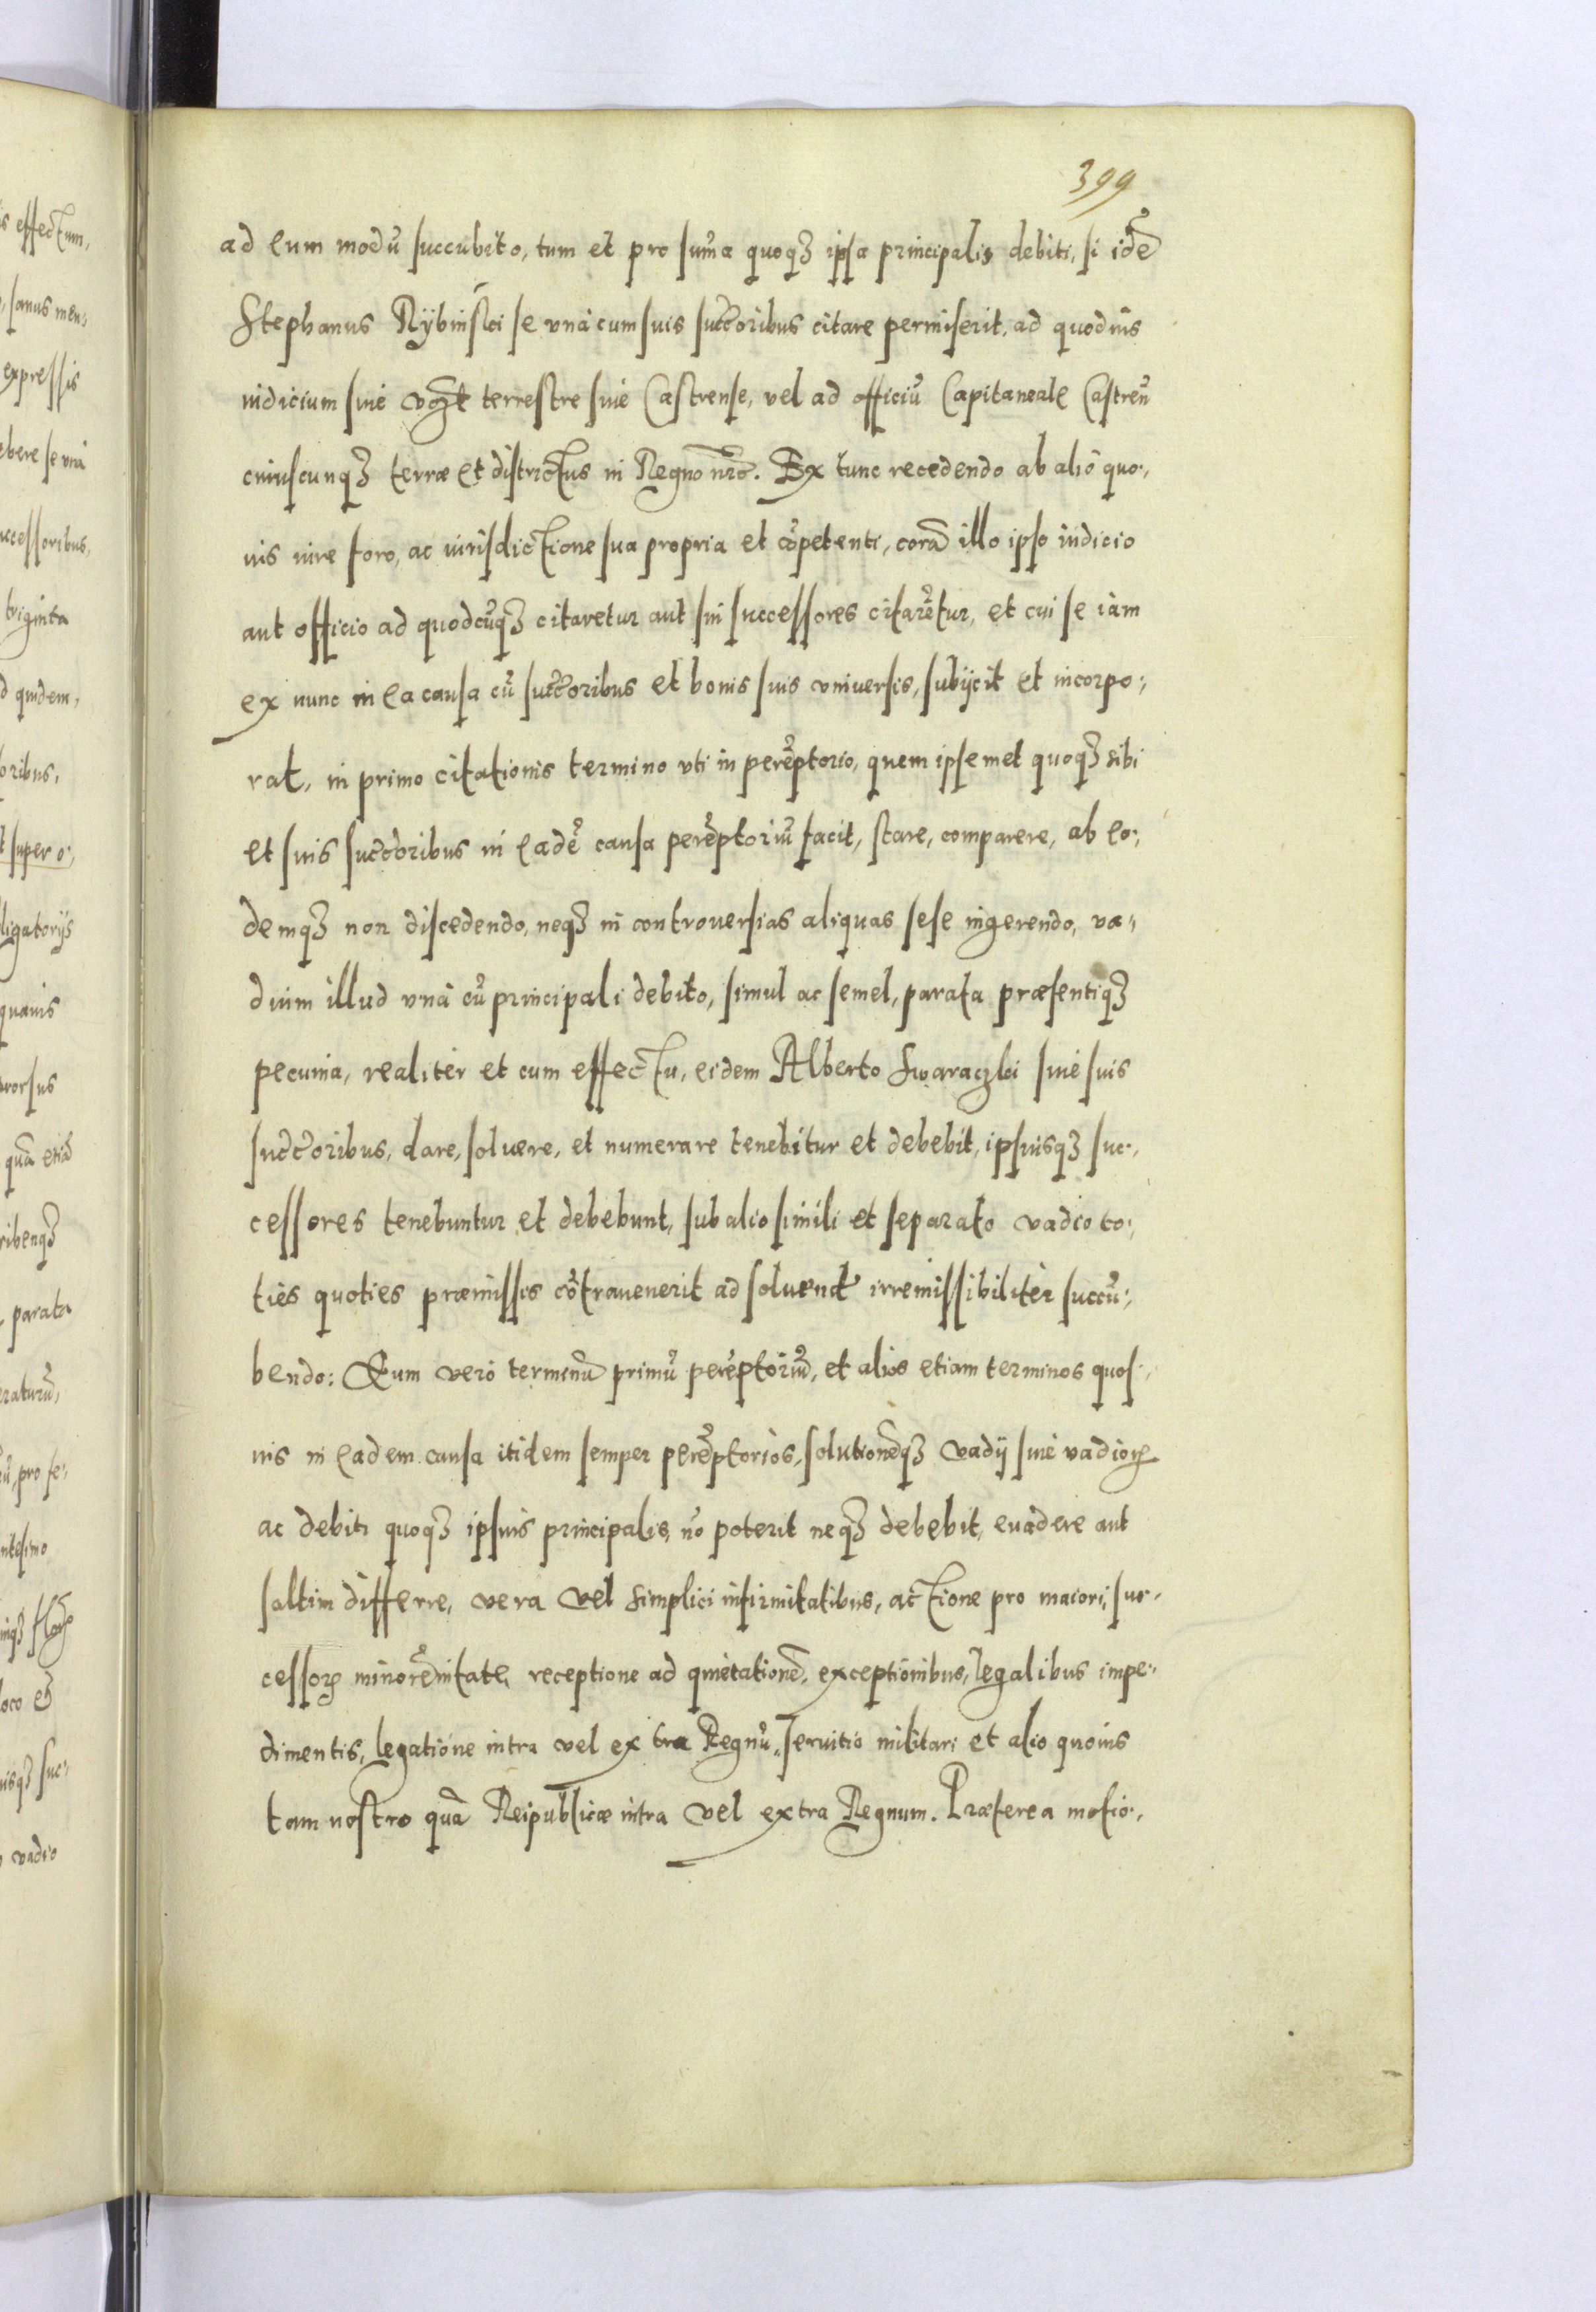 399
ad eum modũ succubito, tum et pro sum̃a quoqꝫ ipsa principalis debiti, si idẽ
Stephanus Rÿbinski se vnà cum suis succ̃oribus citare permiserit, ad quoduis
iudicium siue terrestre siue Castrense, vel ad officiũ Capitaneale Castreñ
cuiuscunqꝫ terræ et districtus in Regno nr̃o. Ex tunc recedendo ab alio quo:,
uis iure foro, ac iurisdictione sua propria et cõpetenti, corã illo ipso iudicio
aut officio ad quodcũqꝫ citaretur aut sui successores citarẽtur, et cui se iam
ex nunc in ea causa cũ succ̃oribus et bonis suis vniuersis, subijcit et incorpo:,
rat, in primo citationis termino vti in perẽptorio, quem ipsemet quoqꝫ sibi
et suis succ̃oribus in eadẽ causa perẽptoriũ facit, stare, comparere, ab eo:,
demqꝫ non discedendo, neqꝫ in controuersias aliquas sese ingerendo, va:,
dium illud vnà cũ principali debito, simul ac semel, parata præsentiqꝫ
pecunia, realiter et cum effectu, eidem Alberto Swaraczki siue suis
succ̃oribus, dare, soluere, et numerare tenebitur et debebit, ipsiusqꝫ suc:,
cessores tenebuntur et debebunt, sub alio simili et separato vadio to:,
ties quoties præmissis cõtrauenerit ad soluend irremissibiliter succũ:,
bendo: Eum verò terminũ primũ perẽptoriũ, et alios etiam terminos quos:,
uis in eadem causa itidem semper perẽptorios, solutionẽqꝫ vadij siue vadioꝝ
ac debiti quoqꝫ ipsius principalis, nõ poterit neqꝫ debebit, euadere aut
saltim differre, vera vel simplici infirmitatibus, actione pro maiori, suc:,
cessoꝝ minorẽnitate, receptione ad quietationẽ, exceptionibus, legalibus impe:,
dimentis, legatione intra vel extra Regnũ, seruitio militari et alio quouis
tam nostro quã Reipublicæ intra vel extra Regnum. Præterea motio:,